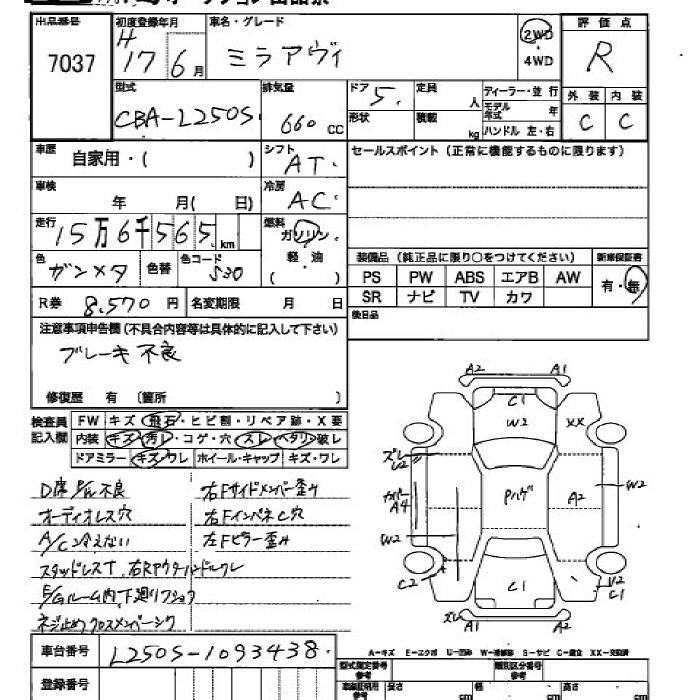 出品番号 初度登録年月 車名・グレード 評価点
7037 H17年6月 ミラアヴィ 2WD・4WD R
型式 排気量 ドア 定員 ディーラー・並行 外装 内装
CBA-L250S. 660cc 5. 人 モデル年式 年 C C
形状 積載 kg ハンドル 左・右
車歴 自家用・( ) シフト AT. セールスポイント(正常に機能するものに限ります)
車検 年 月( 日) 冷房 AC.
走行 15万6千565km 燃料 ガソリン・軽・油 ( )
色 ガンメタ 色替 色コード S30 装備品(純正品に限り○をつけてください) 新車保証書
PS PW ABS エアB AW 有・無
SR ナビ TV カワ
R券 8.570円 名変期限 月 日 後日品
注意事項申告欄(不具合内容等は具体的に記入して下さい)
ブレーキ不良
修復歴 有 〔箇所 〕
検査員記入欄 FW キズ・飛石・ヒビ割・リペア跡・X要
内装 キズ・汚レ・コゲ・穴・スレ・ヘタリ・破レ
ドアミラー キズ・ワレ ホイール・キャップ キズ・ワレ
D席P/W不良 右Fサイドメンバー歪み
オーディオレス穴 右FインパネC穴
A/C冷えない 左Fピラー歪み
スタッドレスT.
E/Gルーム内下廻りフショク
ネジ止めクロスメンバー
A2 A1
C1
W2 XX
ズレ
U2
A4 Pハゲ A2 W2
W2
C2 C1 U2
C1
ズレ A1 A2
車台番号 L250S-1093438.
A-キズ E-エクボ U-凹み W-補修跡 S-サビ C-腐食 XX-交換済
登録番号 型式指定番号 類別区分番号
長さ cm 幅 cm 高さ cm